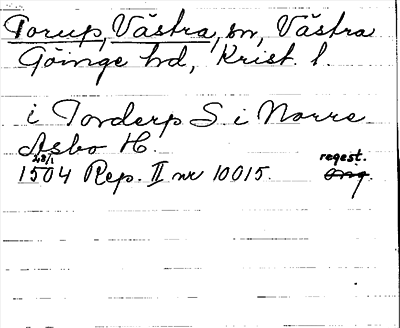 Torup, Västra, sn, Västra
Göinge hd, Krist. l.
i Torderp S. i Norre
Asbo H.
28/1 regest.
1504 Rep. II nr 10015. Orig.